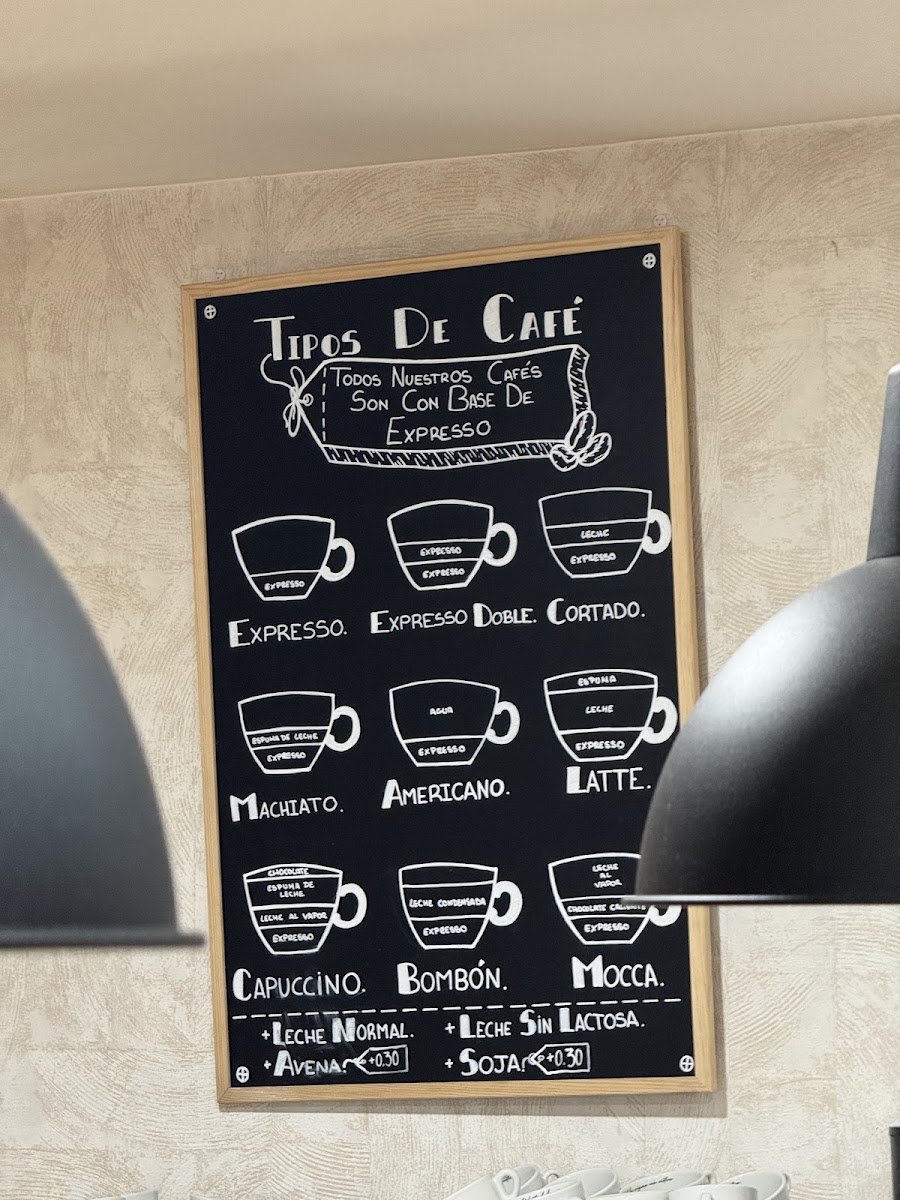 Tipos De Café
Todos Nuestros Cafés
Son Con Base De
Expresso
Expresso
Expresso.
Expresso
Expresso
Expresso Doble.
Leche
Expresso
Cortado.
Espuma de leche
Expresso
Machiato.
Agua
Expresso
Americano.
Espuma
Leche
Expresso
Latte.
Chocolate
Espuma de
leche
Leche al vapor
Expresso
Capuccino.
Leche condensada
Expresso
Bombón.
Leche
al
vapor
Chocolate caliente
Expresso
Mocca.
+Leche Normal.
+Leche Sin Lactosa.
+Avena! +0.30
+Soja! +0.30